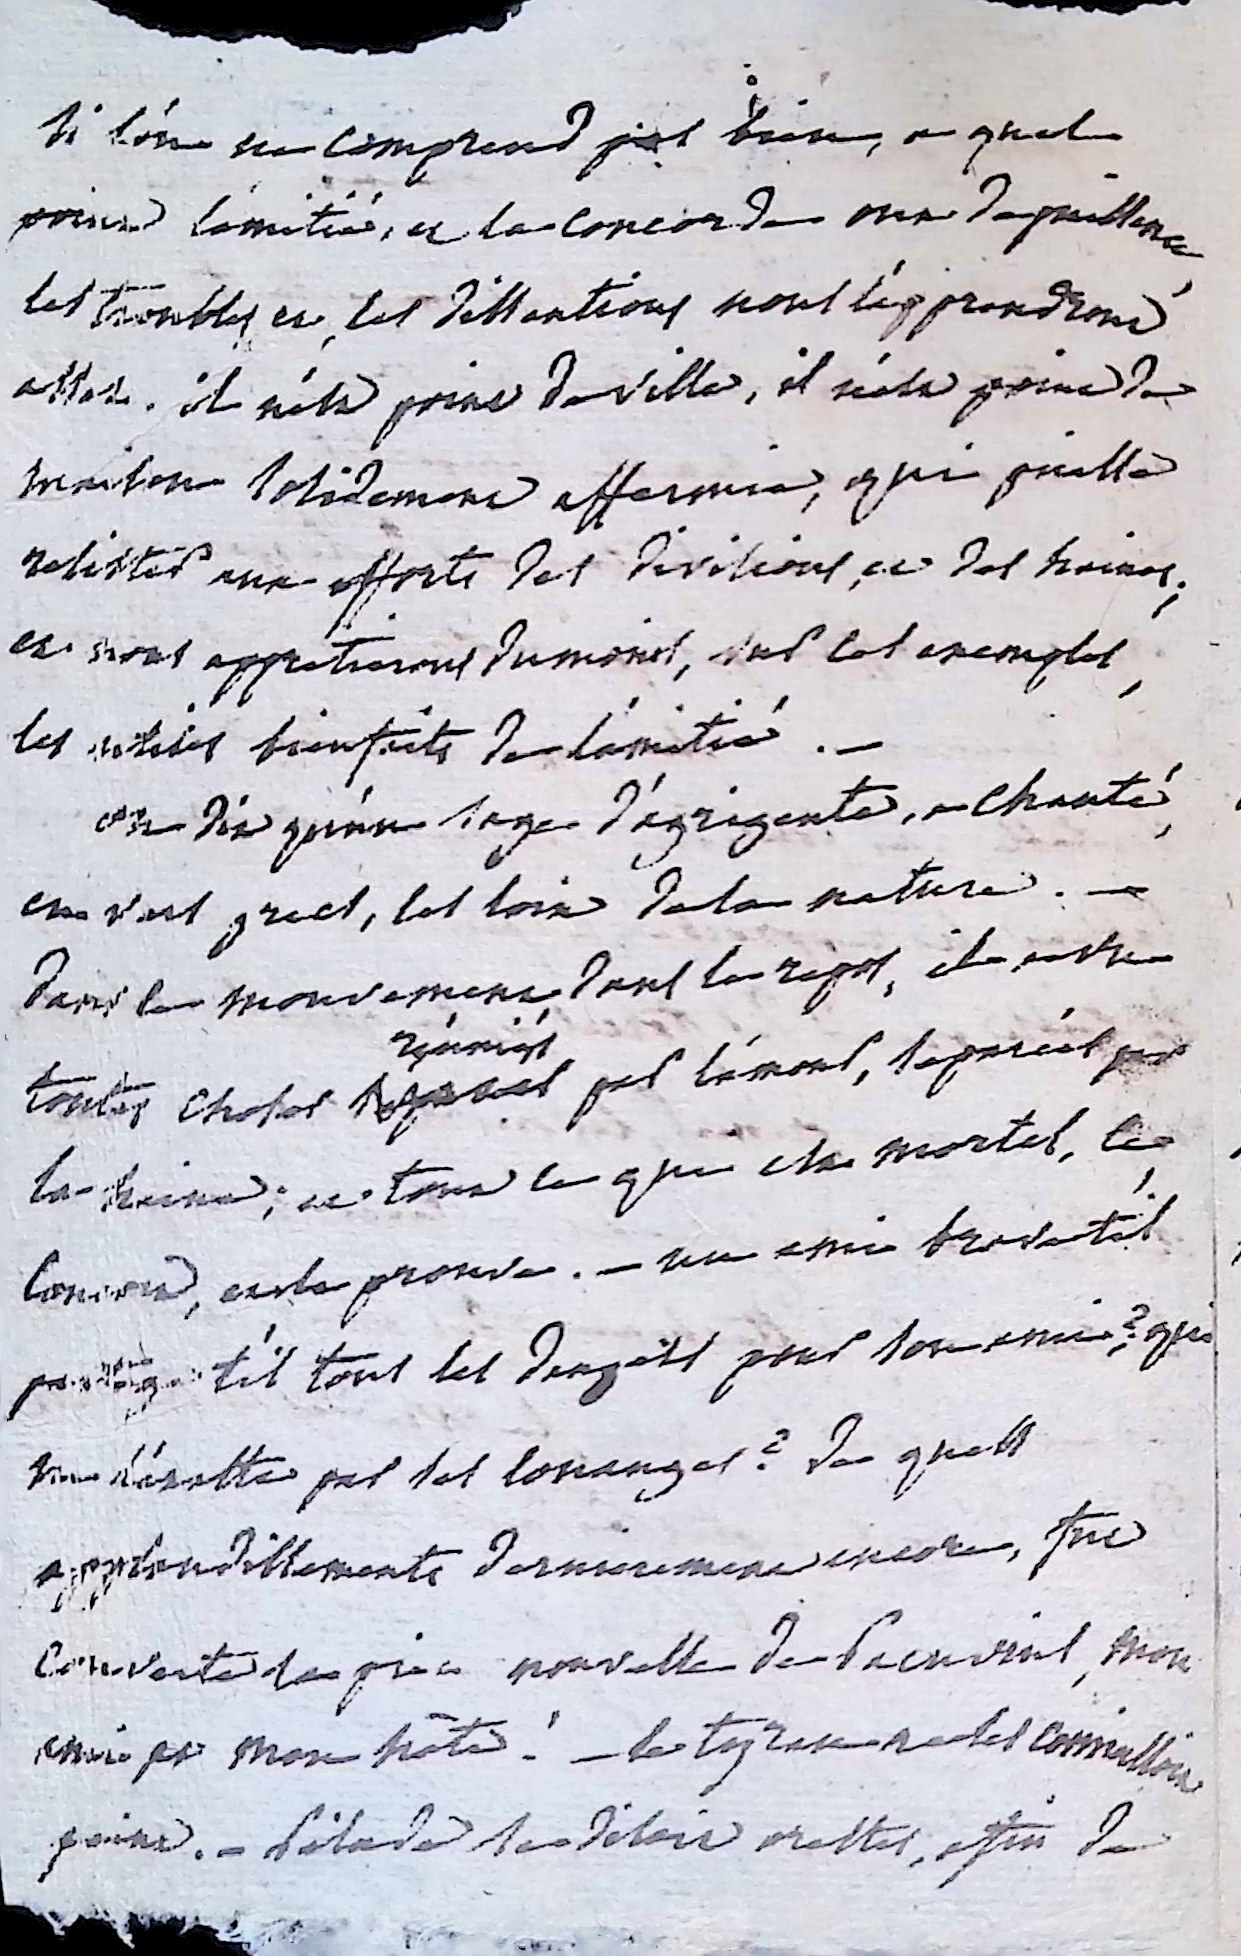 si l'on ne comprend pas bien, a quel
point l'amitié, et la concorde ont de puissance,
les troubles et, les dissentions nous l'apprendront
assés. il n'est point de ville, il n'est point de
maison solidement affermie, qui puisse
resister aux efforts des divisions, et des haines;
et nous appretierons du moins, sur ces exemples,
les utiles bienfaits de l'amitié. —
on dit qu'un sage d'agrigente, a chanté,
en vers grecs, les loix de la nature. —
dans le mouvement dans le repos, il a vu
toutes choses réuniés par l'amour, separées par
la haine; et tout ce qui est mortel, le,
concoit, et le prouve. — un ami brave t'il
partage t'il tous les dangers pour son ami? qui
ne s'éxalte par ses louanges? de quels
applaudissements dernierement encore, fut
couverte la piece nouvelle de Pacuvius, mon
ami et mon hôte! — le tyran ne les connaissoit
point. — Pilade se disoit orestes, afin de